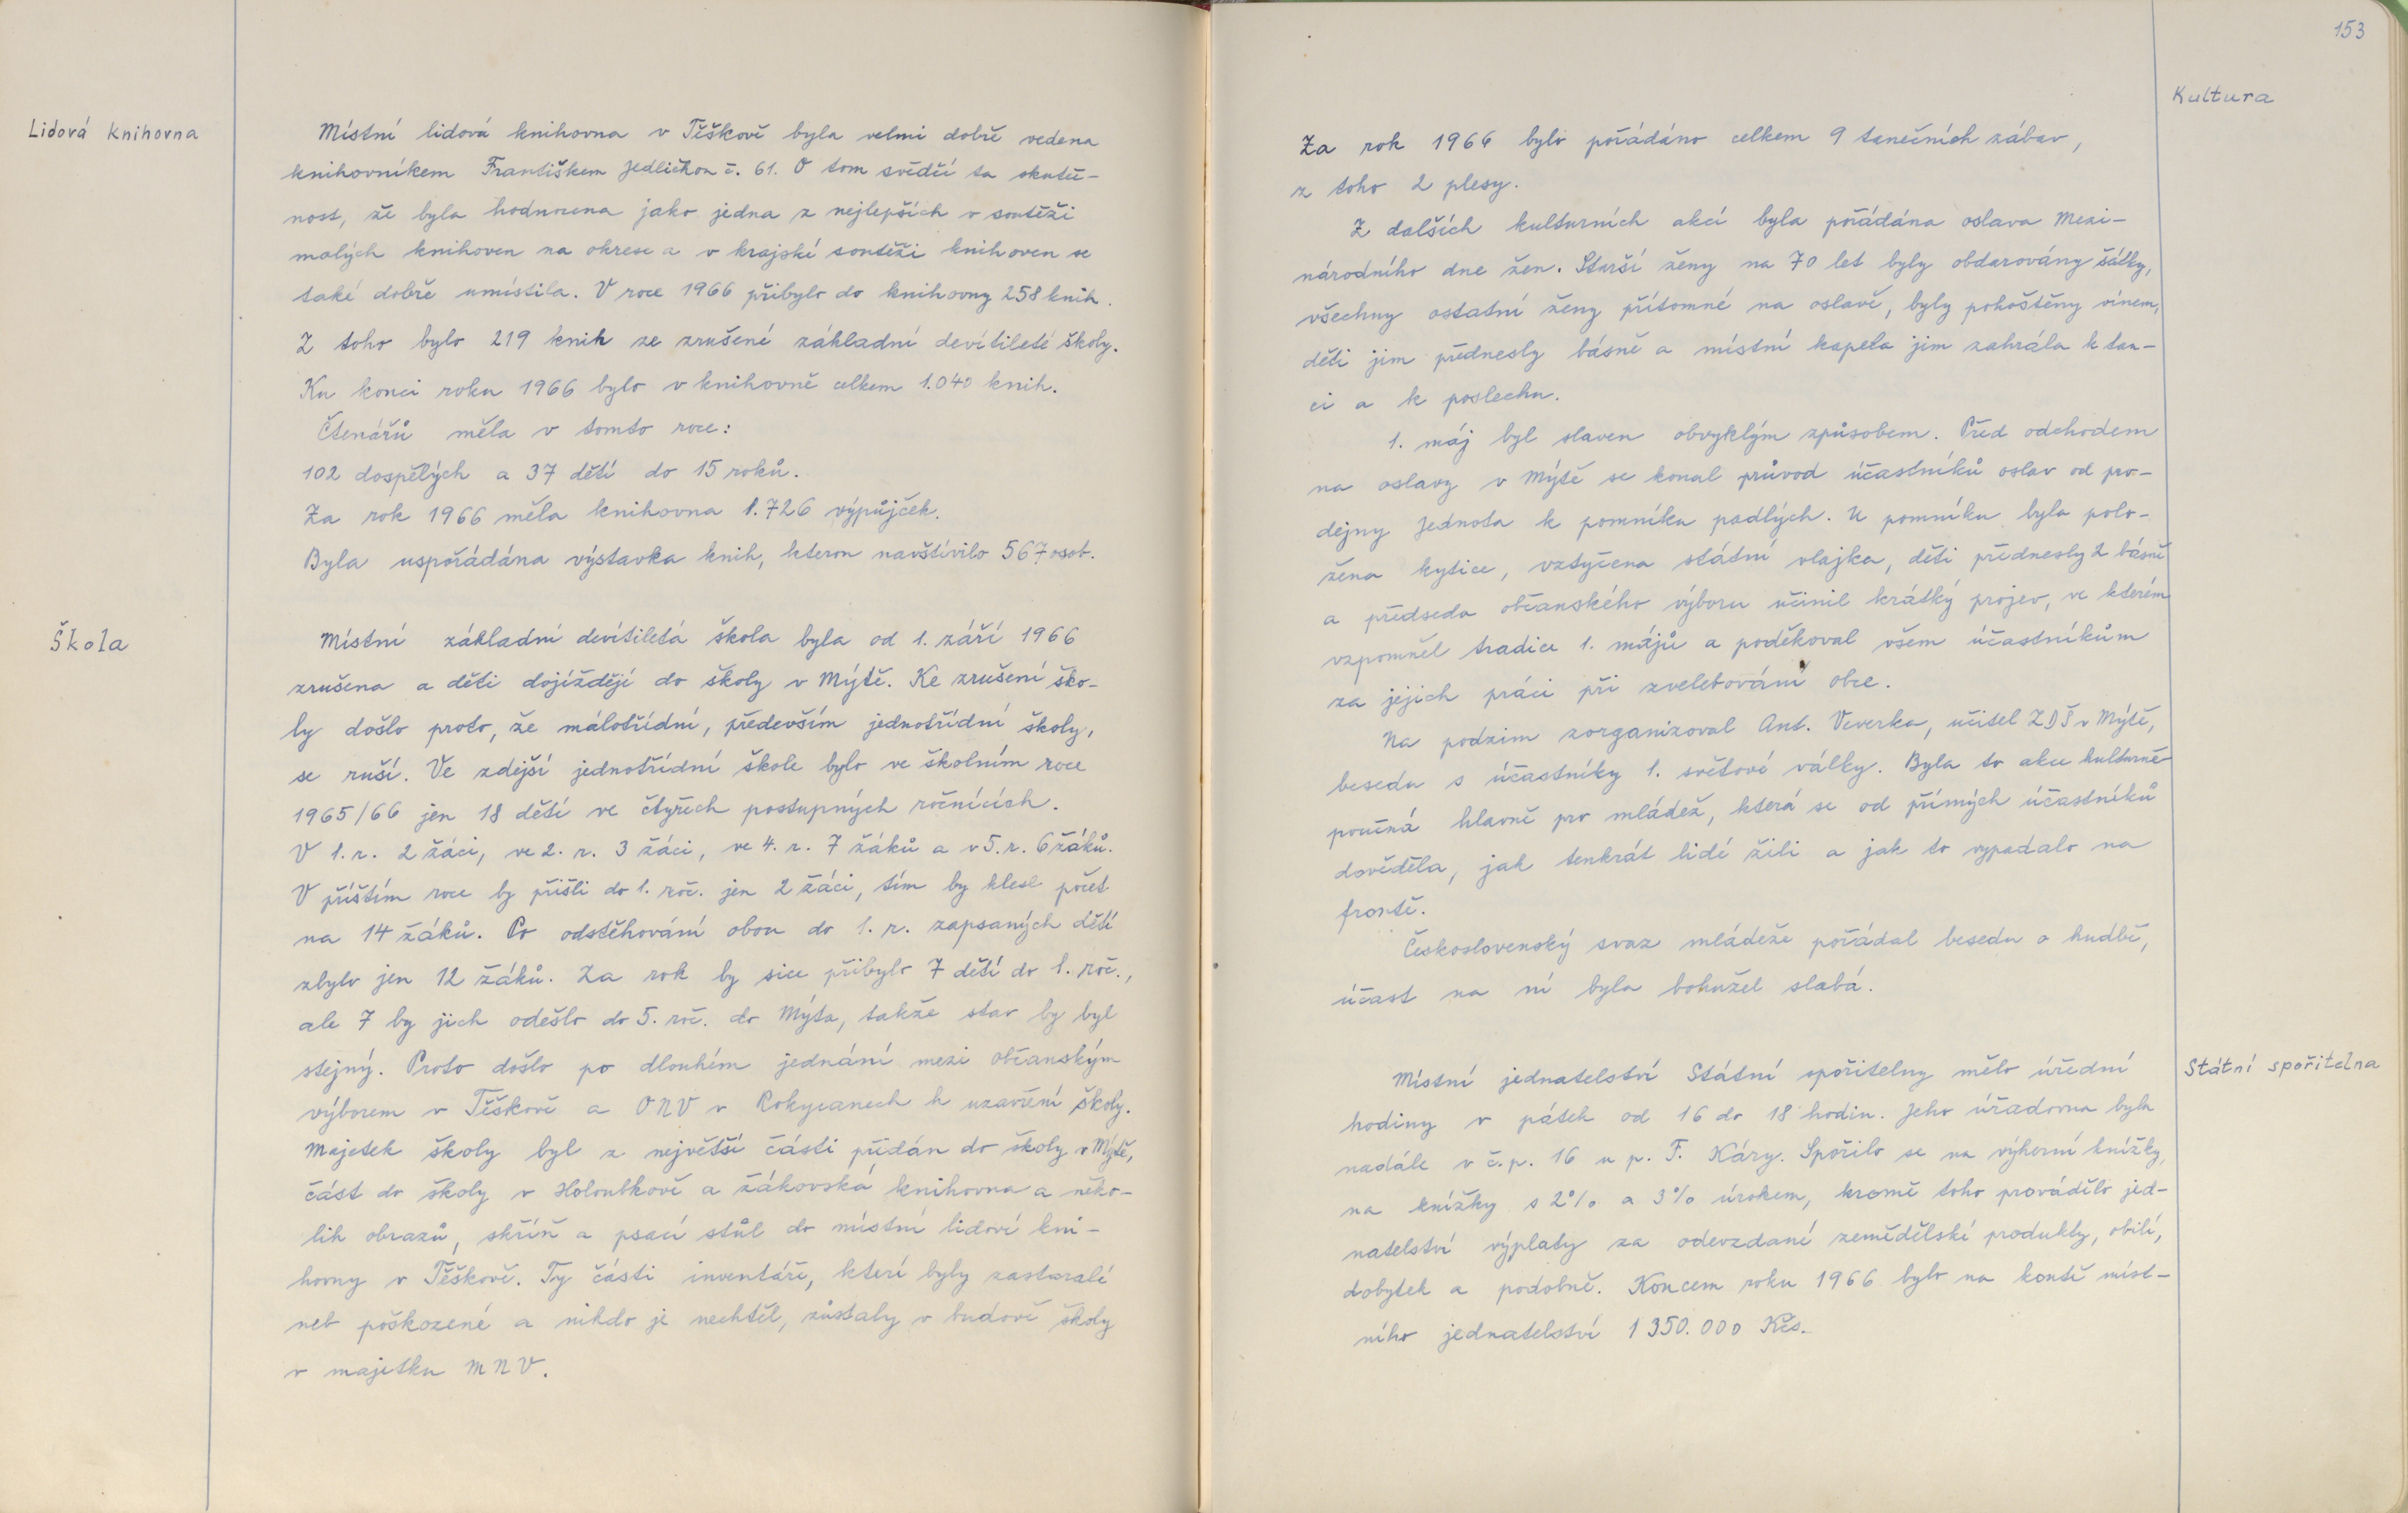 Lidová knihovna
Místní lidová knihovna v Těškově byla velmi dobře vedena
knihovníkem Františkem Jedličkou č. 61. O tom svědčí ta skuteč-
nost, že byla hodnocena jako jedna z nejlepších v soutěži
malých knihoven na okrese a v krajské soutěži knihoven se
také dobře umístila. V roce 1966 přibylo do knihovny 258 knih.
Z toho bylo 219 knih ze zrušené základní devítileté školy.
Ku konci roku 1966 bylo v knihovně celkem 1.040 knih.
Čtenářů měla v tomto roce:
102 dospělých a 37 dětí do 15 roků.
Za rok 1966 měla knihovna 1.726 výpůjček.
Byla uspořádána výstavka knih, kterou navštívilo 567 osob.
Škola
Místní základní devítiletá škola byla od 1. září 1966
zrušena a děti dojíždějí do školy v Mýtě. Ke zrušení ško-
ly došlo proto, že málotřídní, především jednotřídní školy,
se ruší. Ve zdejší jednotřídní škole bylo ve školním roce
1965/66 jen 18 dětí ve čtyřech postupných ročnících.
V 1. r. 2 žáci, ve 2. r. 3 žáci, ve 4. r. 7 žáků a v 5. r. 6 žáků.
V příštím roce by přišli do 1. roč. jen 2 žáci, tím by klesl počet
na 14 žáků. Po odstěhování obou do 1. r. zapsaných dětí
zbylo jen 12 žáků. Za rok by sice přibylo 7 dětí do 1. roč.,
ale 7 by jich odešlo do 5. roč. do Mýta, takže stav by byl
stejný. Proto došlo po dlouhém jednání mezi občanským
výborem v Těškově a ONV v Rokycanech k uzavření školy.
Majetek školy byl z největší části předán do školy v Mýtě,
část do školy v Holoubkově a žákovská knihovna a něko-
lik obrazů, skříň a psací stůl do místní lidové kni-
hovny v Těškově. Ty části inventáře, které byly zastaralé
neb poškozené a nikdo je nechtěl, zůstaly v budově školy
v majetku MNV.
153
Kultura
Za rok 1966 bylo pořádáno celkem 9 tanečních zábav,
z toho 2 plesy.
Z dalších kulturních akcí byla pořádána oslava Mezi-
národního dne žen. Starší ženy na 70 let byly obdarovány šálky,
všechny ostatní ženy přítomné na oslavě, byly pohoštěny vínem,
děti jim přednesly básně a místní kapela jim zahrála k tan-
ci a k poslechu.
1. máj byl slaven obvyklým způsobem. Před odchodem
na oslavy v Mýtě se konal průvod účastníků oslav od pro-
dejny Jednota k pomníku padlých. U pomníku byla polo-
žena kytice, vztyčena státní vlajka, děti přednesly 2 básně
a předseda občanského výboru učinil krátký projev, ve kterém
vzpomněl tradice 1. májů a poděkoval všem účastníkům
za jejich práci při zvelebování obce.
Na podzim zorganizoval Ant. Veverka, učitel ZDŠ v Mýtě,
besedu s účastníky 1. světové války. Byla to akce kulturně
poučná hlavně pro mládež, která se od přímých účastníků
dověděla, jak tenkrát lidé žili a jak to vypadalo na
frontě.
Československý svaz mládeže pořádal besedu o hudbě,
účast na ní byla bohužel slabá.
Státní spořitelna
Místní jednatelství Státní spořitelny mělo úřední
hodiny v pátek od 16 do 18 hodin. Jeho úřadovna byla
nadále v č.p. 16 u p. F. Káry. Spořilo se na výherní knížky,
na knížky s 2% a 3% úrokem, kromě toho provádělo jed-
natelství výplaty za odevzdané zemědělské produkty, obilí,
dobytek a podobně. Koncem roku 1966 bylo na kontě míst-
ního jednatelství 1 350.000 Kčs.